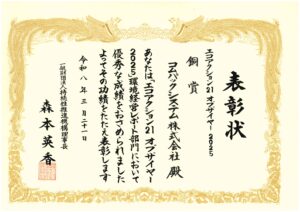 表彰状
エコアクション21 オブザイヤー 2025
銅賞
コムパックシステム株式会社 殿
あなたは、エコアクション21 オブザイヤー
2025 環境経営レポート部門において
優秀な成績をおさめられました
よってその功績をたたえ表彰します
令和八年三月二十一日
一般財団法人持続性推進機構理事長
森本英香